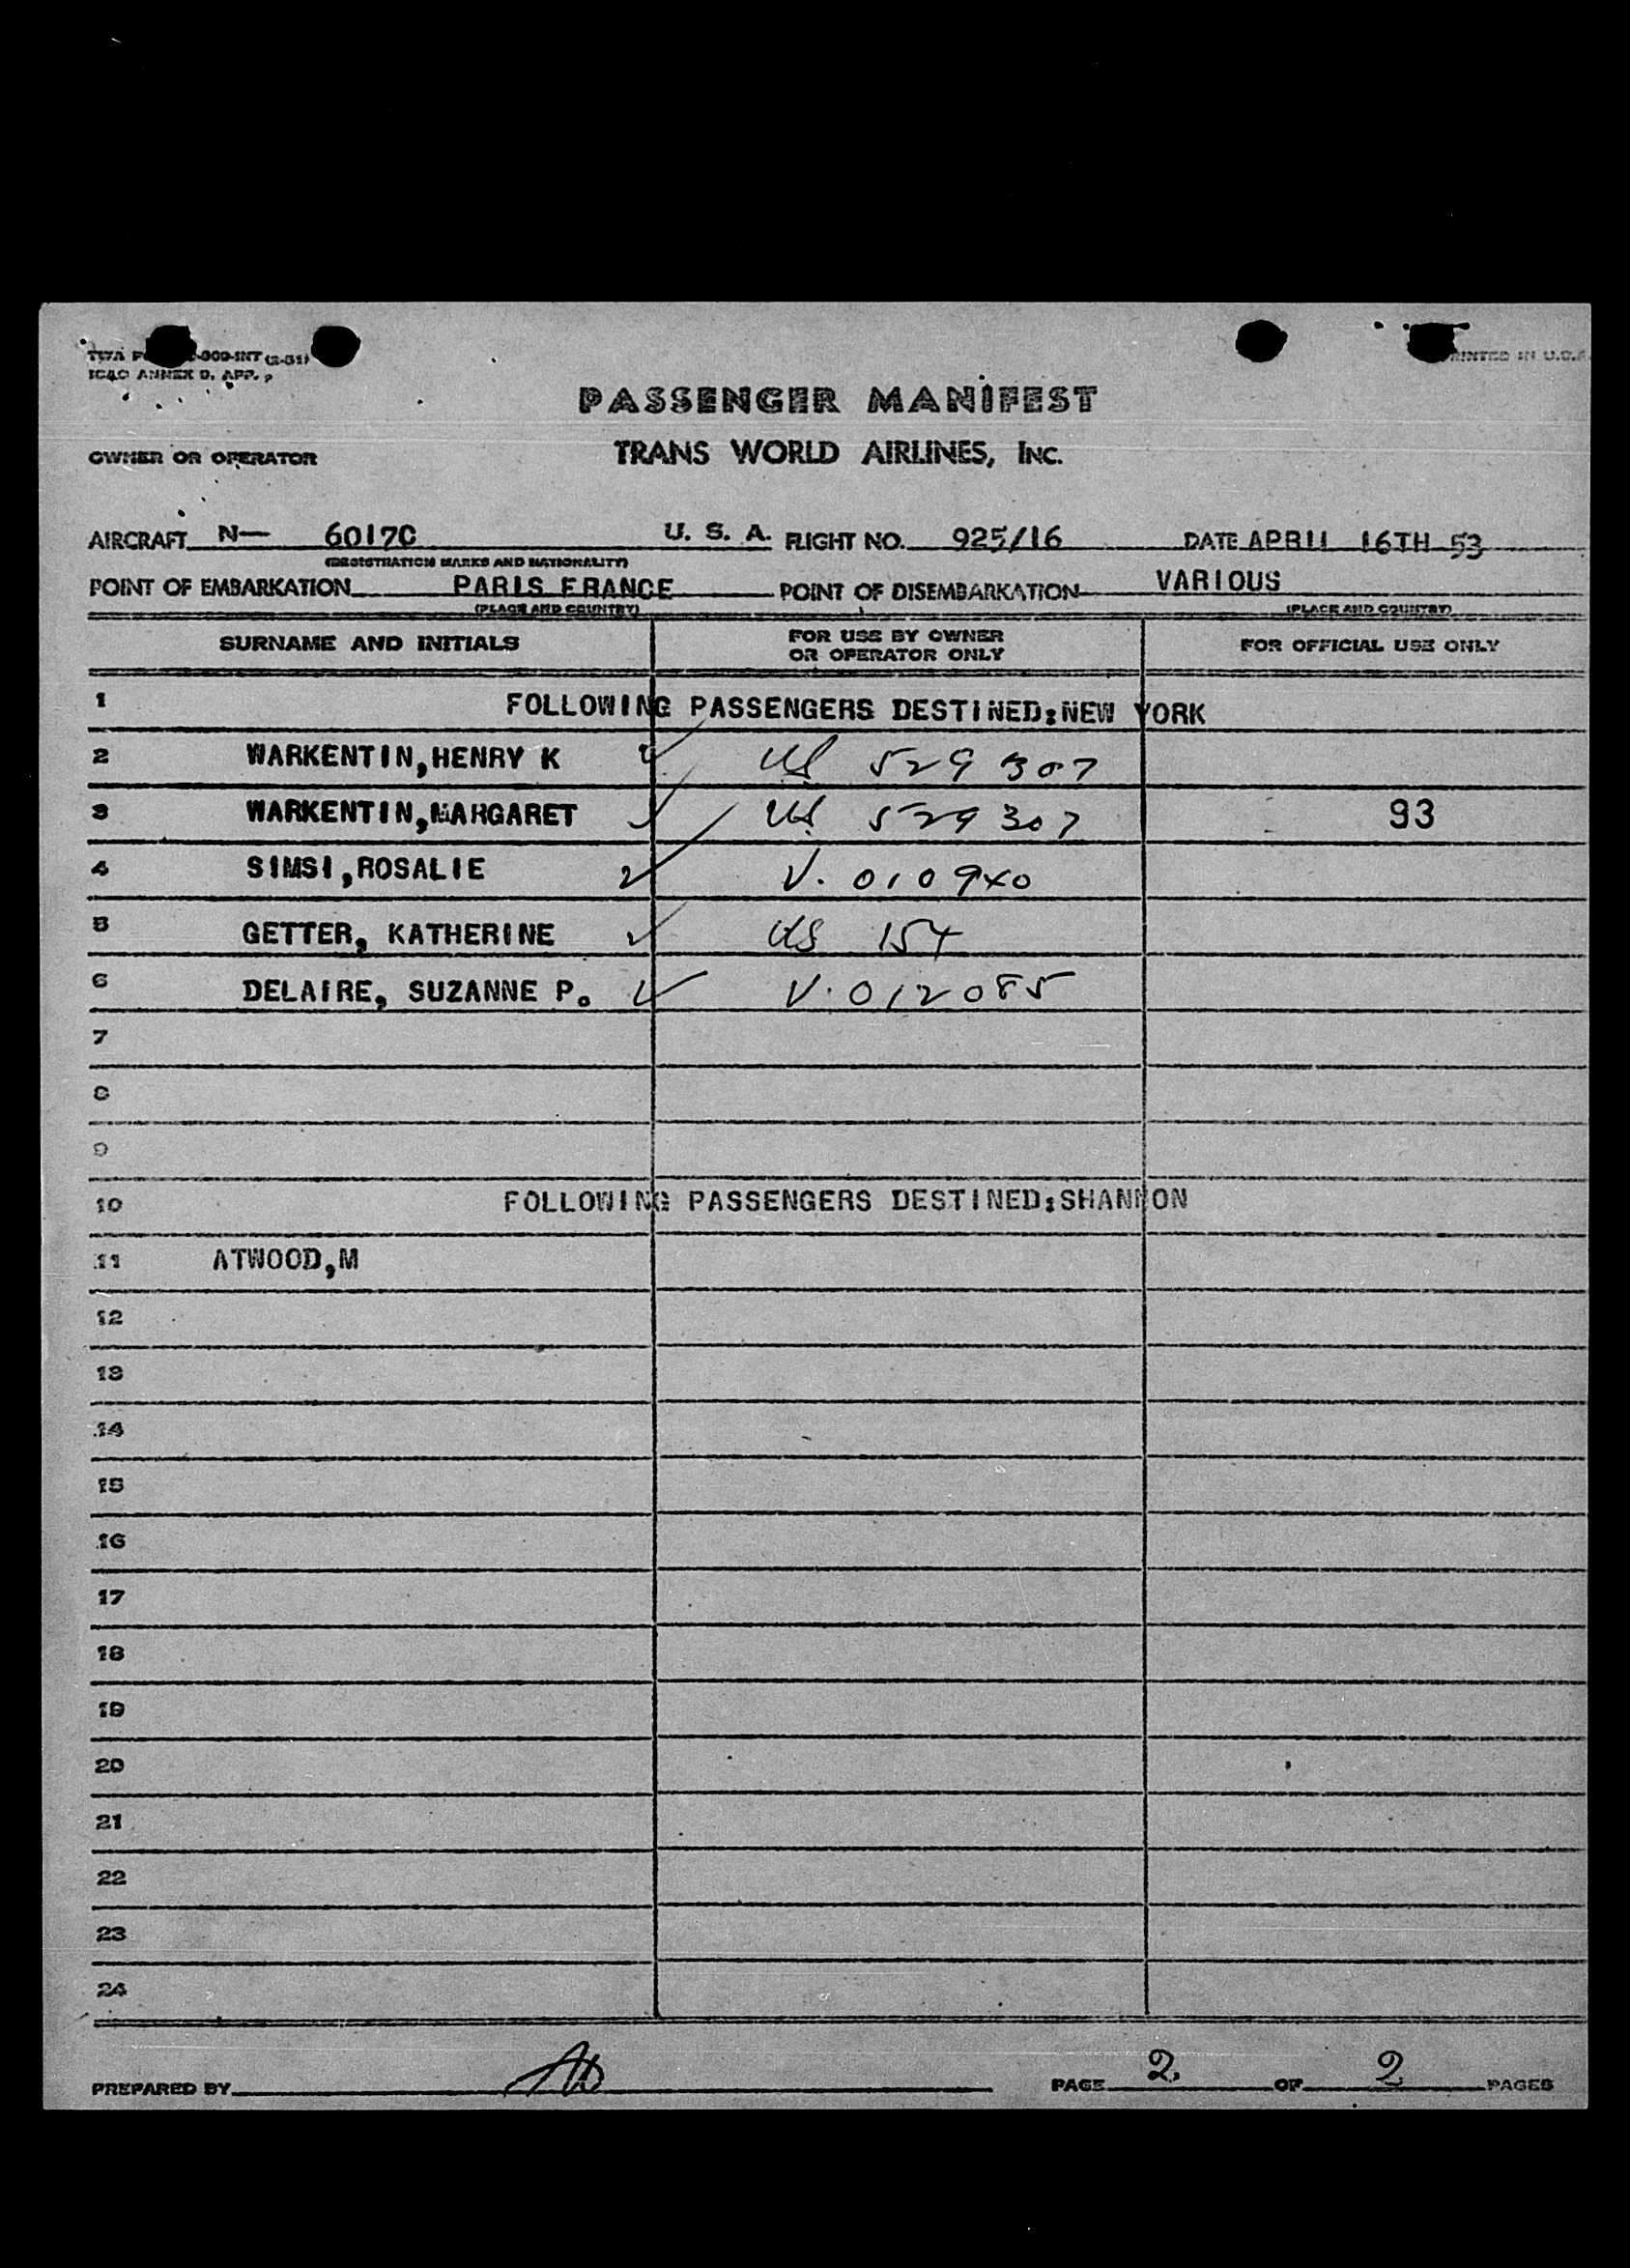 ICAO ANNEX 9, APP.
PRINTED IN U.S.A.
PASSENGER MANIFEST
OWNER OR OPERATOR TRANS WORLD AIRLINES, INC.
AIRCRAFT N— 6017C U. S. A. FLIGHT NO. 925/16 DATE APRIL 16TH 53
(REGISTRATION MARKS AND NATIONALITY)
POINT OF EMBARKATION PARIS FRANCE POINT OF DISEMBARKATION VARIOUS
(PLACE AND COUNTRY) (PLACE AND COUNTRY)
SURNAME AND INITIALS FOR USE BY OWNER OR OPERATOR ONLY FOR OFFICIAL USE ONLY
1 FOLLOWING PASSENGERS DESTINED:NEW YORK
2 WARKENTIN,HENRY K ✓ US 529307
3 WARKENTIN,MARGARET ✓ US 529307 93
4 SIMSI,ROSALIE ✓ V. 010940
5 GETTER, KATHERINE ✓ US 154
6 DELAIRE, SUZANNE P. ✓ V. 012085
7
8
9
10 FOLLOWING PASSENGERS DESTINED:SHANNON
11 ATWOOD,M
12
13
14
15
16
17
18
19
20
21
22
23
24
PREPARED BY PAGE 2 OF 2 PAGES